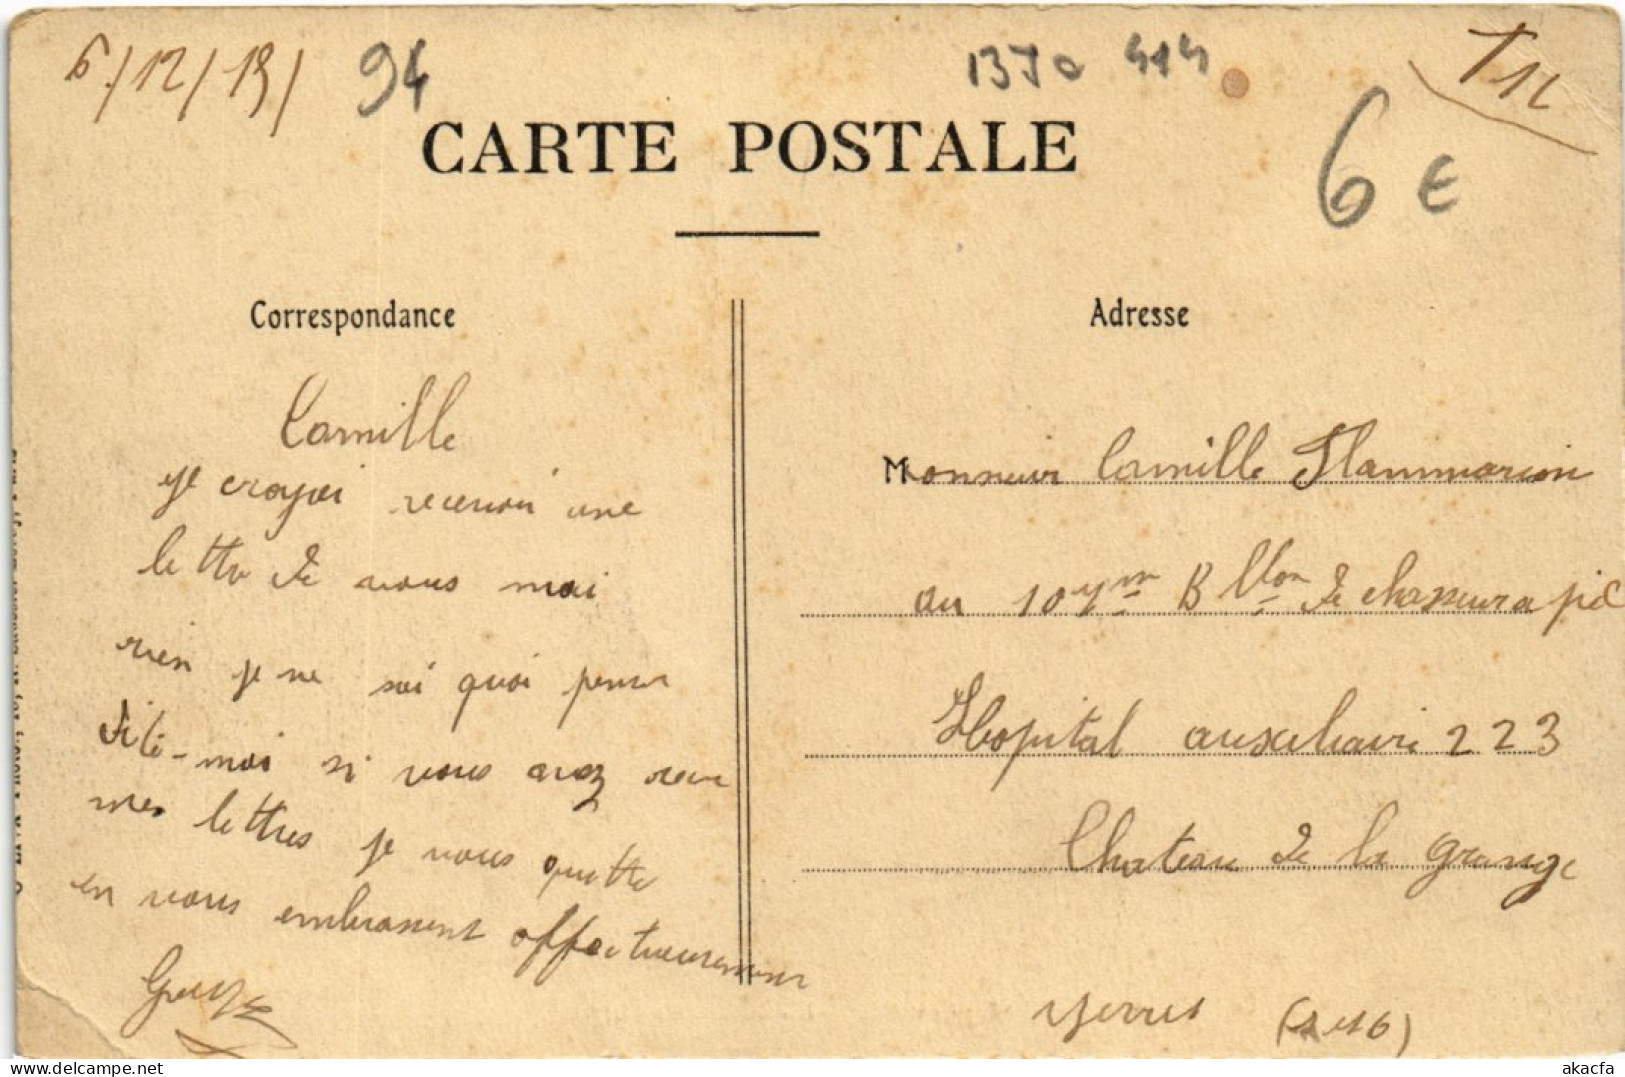 6/12/15/
94
137a 414
T12
CARTE POSTALE
6 €
Correspondance
Adresse
Camille
je croyai recevoir une
lettre de vous mai
rien je ne sai quoi penser
dite-moi si vous avez recu
mes lettres je vous quitte
en vous embrassent affectueusement
Monsieur Camille Flammarion
au 10yem Bllon de chasseur a pié
Hopital auxiliaire 223
Chateau de la grange
yerres (S et O)
akacfa